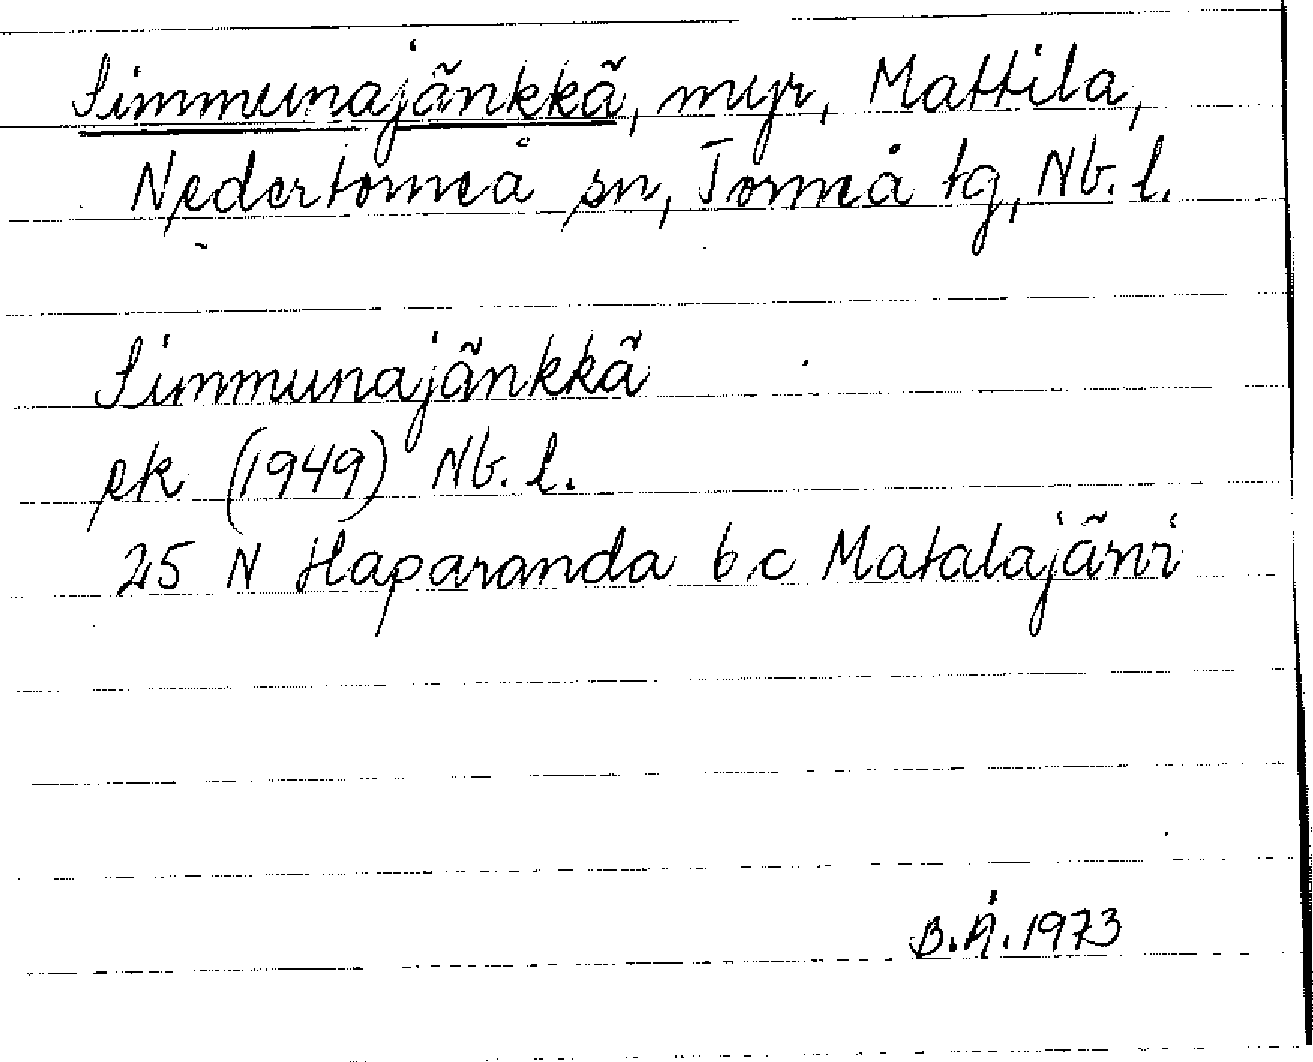 Simmunajänkkä, myr, Mattila,
Nedertorneå sn, Torneå tg, Nb. l.
Simmunajänkkä
ek (1949) Nb. l.
25 N Haparanda b c Matalajärvi
B.Å. 1973